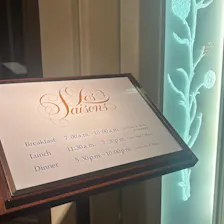 Les
Saisons
Breakfast 7:00am - 11:00am
Lunch 11:30am - 2:30pm
Dinner 5:30pm - 10:00pm